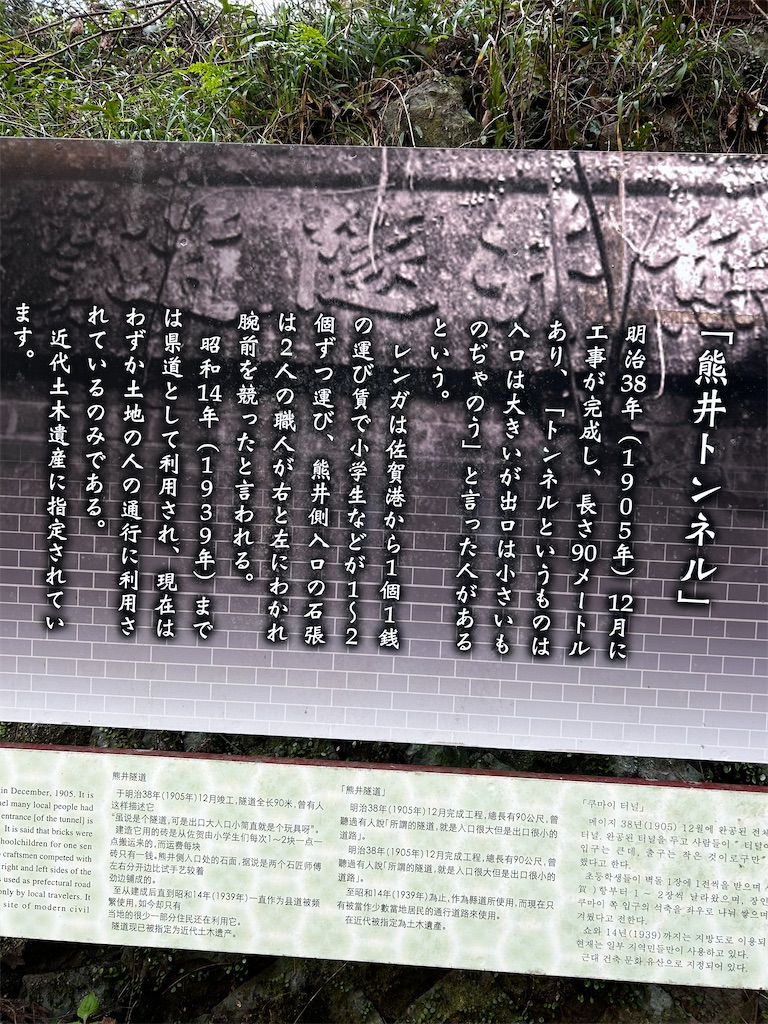 「熊井トンネル」
明治38年（1905年）12月に
工事が完成し、長さ90メートル
あり、「トンネルというものは
入口は大きいが出口は小さいも
のぢゃのう」と言った人がある
という。
レンガは佐賀港から1個1銭
の運び賃で小学生などが1〜2
個ずつ運び、熊井側入口の石張
は2人の職人が右と左にわかれ
腕前を競ったと言われる。
昭和14年（1939年）まで
は県道として利用され、現在は
わずか土地の人の通行に利用さ
れているのみである。
近代土木遺産に指定されてい
ます。
in December, 1905. It is
many local people had
entrance [of the tunnel] is
It is said that bricks were
schoolchildren for one sen
craftsmen competed with
right and left sides of the
as used as prefectural road
only by local travelers. It
site of modern civil
熊井隧道
于明治38年(1905年)12月竣工,隧道全长90米,曾有人
这样描述它
“虽说是个隧道,可是出口大人口小简直就是个玩具呀”。
建造它用的砖是从佐贺由小学生们每次1～2块一点一
点搬运来的,而运费每块
砖只有一钱。熊井侧入口处的石面,据说是两个石匠师傅
在右分开边比试手艺较着
劲边铺成的。
至从建成后直到昭和14年(1939年)一直作为县道被频
繁使用,如今却只有
当地的很少一部分住民还在利用它。
隧道现已被指定为近代土木遗产。
「熊井隧道」
明治38年(1905年)12月完成工程,總長有90公尺,曾
聽過有人說「所謂的隧道,就是入口很大但是出口很小的
道路」。
明治38年(1905年)12月完成工程,總長有90公尺,曾
聽過有人說「所謂的隧道,就是入口很大但是出口很小的
道路」。
至昭和14年(1939年)為止,作為縣道所使用,而現在只
有被當作少數當地居民的通行道路來使用。
在近代被指定為土木遺產。
「쿠마이 터널」
메이지 38년(1905) 12월에 완공된 전체
터널. 완공된 터널을 두고 사람들이 " 터널이
입구는 큰데, 출구는 작은 것이로구만"
했다고 한다.
초등학생들이 벽돌 1장에 1전씩을 받으며 사
賀 )항부터 1 ~ 2장씩 날라왔으며, 장인
쿠마이 쪽 입구의 석축을 좌우로 나눠 쌓으며
겨뤘다고 전한다.
쇼와 14년(1939)까지는 지방도로 이용되
현재는 일부 지역민들만이 사용하고 있다.
근대 건축 문화 유산으로 지정되어 있다.